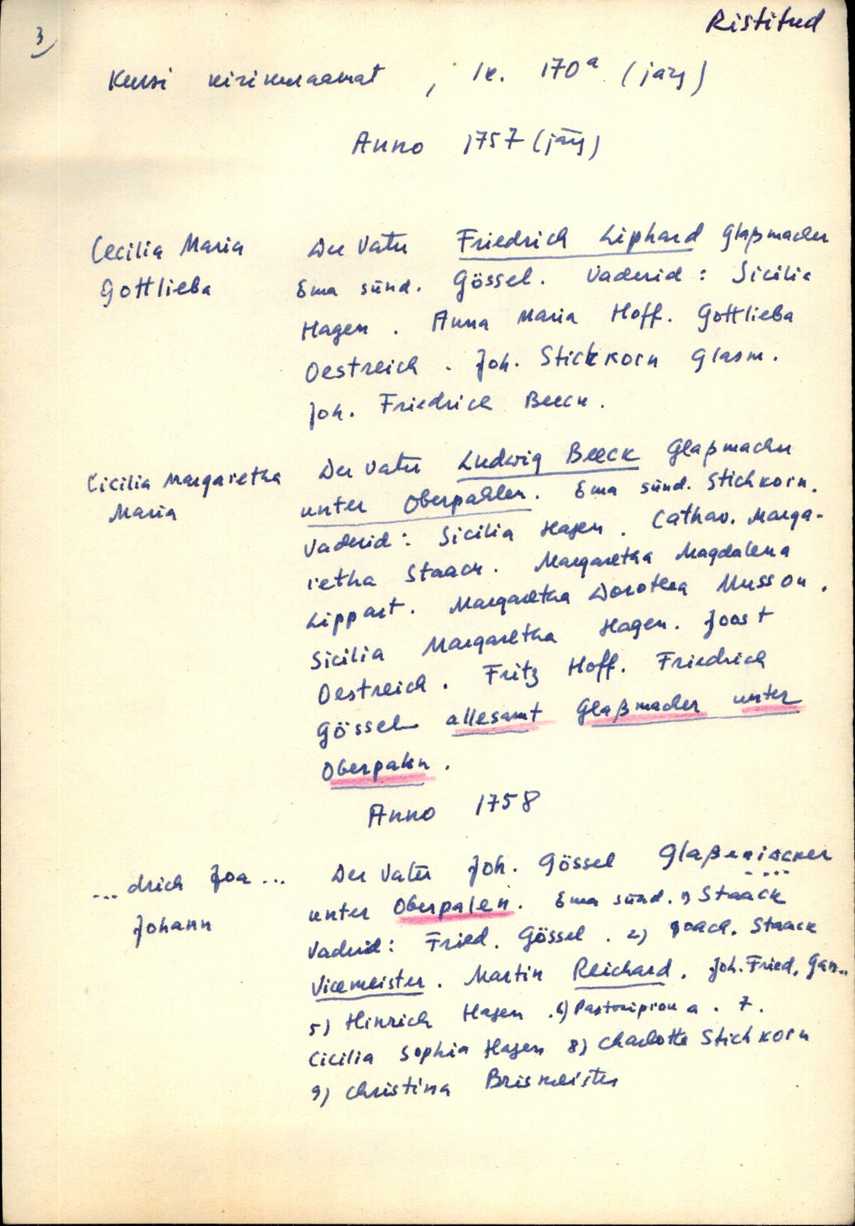 3
Ristitud
Kursi kirikuraamat, lk. 170ª (järg)
Anno 1757 (järg)
Cecilia Maria Gottlieba
Der Vater Friedrich Liphard Glaßmacher
Ema sünd. Gössel. Vaderid: Sicilia
Hagen. Anna Maria Hoff. Gottlieba
Oestreich. Joh. Stickkorn Glasm.
Joh. Friedrich Beeck.
Cicilia Margaretha Maria
Der Vater Ludwig Beeck Glaßmacher
unter Oberpahlen. Ema sünd. Stichkorn.
Vaderid: Sicilia Hagen. Cathar. Marga-
retha Staack. Margaretha Magdalena
Lippart. Margaretha Dorothea Musson.
Sicilia Margaretha Hagen. Joost
Oestreich. Fritz Hoff. Friedrich
Gössel allesamt Glaßmacher unter
Oberpalen.
Anno 1758
...drich Joa... Johann
Der Vater Joh. Gössel Glaß
unter Oberpalen. Ema sünd. Staack
Vaderid: Fried. Gössel. 2) Joach. Staack
Vicemeister. Martin Reichard. Joh. Fried. Gan...
5) Hinrich Hagen. 6) Pastoriprou a. 7.
Cicilia Sophia Hagen 8) Charlotte Stichkorn
9) Christina Brismeister